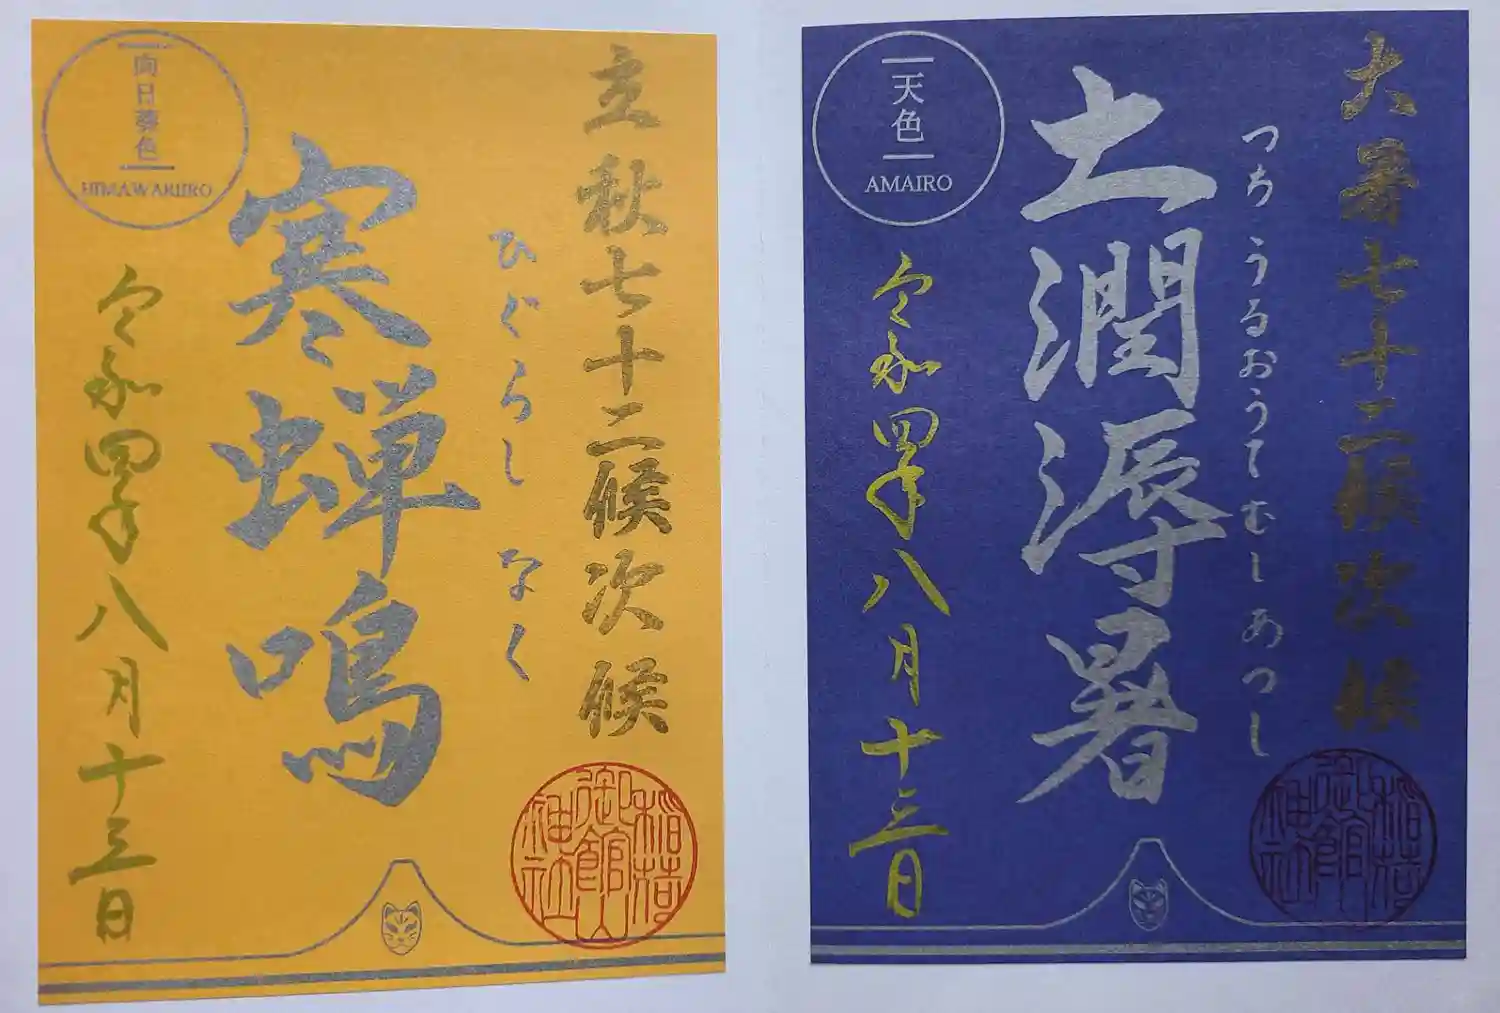 立秋七十二候次候
ひぐらし なく
寒蝉鳴
向日葵色
HIMAWARIIRO
令和四年八月十三日
稲荷
御館山
神社
大暑七十二候次候
つち うるおうてむし あつし
土潤溽暑
天色
AMAIRO
令和四年八月十三日
稲荷
御館山
神社